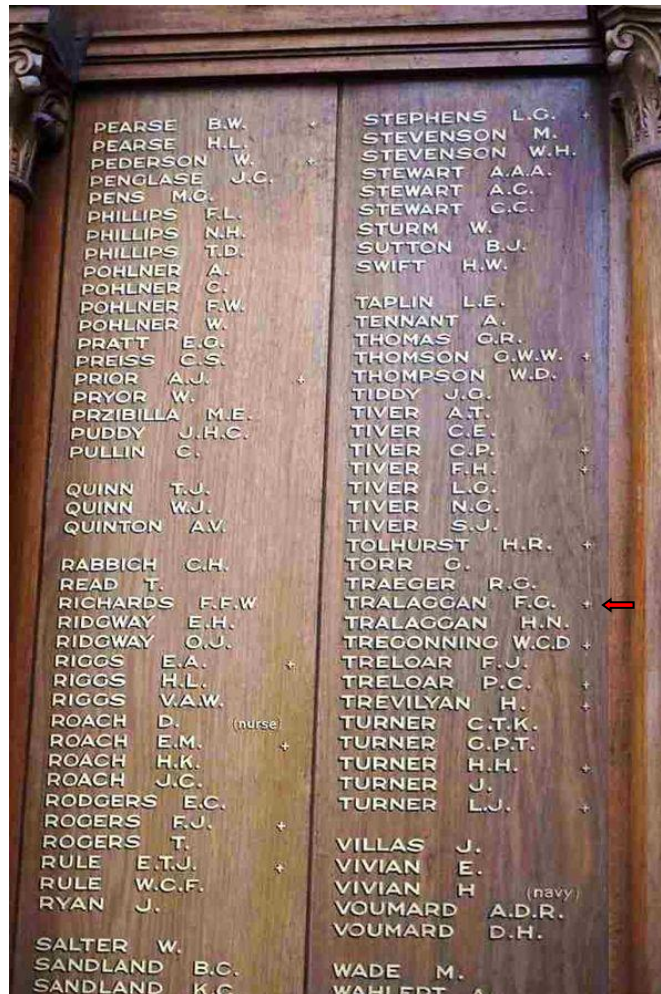 PEARSE B.W. +
PEARSE H.L.
PEDERSON W. +
PENGLASE J.C.
PENS M.G.
PHILLIPS F.L.
PHILLIPS N.H.
PHILLIPS T.D.
POHLNER A.
POHLNER C.
POHLNER F.W.
POHLNER W.
PRATT E.G.
PREISS C.S.
PRIOR A.J. +
PRYOR W.
PRZIBILLA M.E.
PUDDY J.H.C.
PULLIN C.
QUINN T.J.
QUINN W.J.
QUINTON A.V.
RABBICH C.H.
READ T.
RICHARDS F.F.W
RIDGWAY E.H.
RIDGWAY O.J.
RIGGS E.A. +
RIGGS H.L.
RIGGS V.A.W.
ROACH D. (nurse)
ROACH E.M. +
ROACH H.K.
ROACH J.C.
RODGERS E.C.
ROGERS F.J. +
ROGERS T.
RULE E.T.J. +
RULE W.C.F.
RYAN J.
SALTER W.
SANDLAND B.C.
SANDLAND K.C.
STEPHENS L.G. +
STEVENSON M.
STEVENSON W.H.
STEWART A.A.A.
STEWART A.C.
STEWART C.C.
STURM W.
SUTTON B.J.
SWIFT H.W.
TAPLIN L.E.
TENNANT A.
THOMAS G.R.
THOMSON G.W.W. +
THOMPSON W.D.
TIDDY J.G.
TIVER A.T.
TIVER C.E.
TIVER C.P. +
TIVER F.H. +
TIVER L.G.
TIVER N.G.
TIVER S.J.
TOLHURST H.R. +
TORR G.
TRAEGER R.G.
TRALAGGAN F.G. +
TRALAGGAN H.N.
TREGONNING W.C.D +
TRELOAR F.J.
TRELOAR P.C. +
TREVILYAN H. +
TURNER C.T.K.
TURNER G.P.T.
TURNER H.H. +
TURNER J.
TURNER L.J. +
VILLAS J.
VIVIAN E.
VIVIAN H (navy)
VOUMARD A.D.R.
VOUMARD D.H.
WADE M.
WAHLERT A.